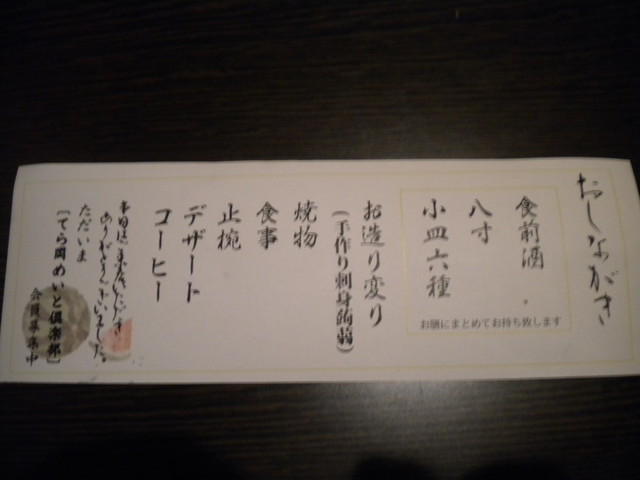 おしながき
食前酒
八寸
小皿六種
お膳にまとめてお持ち致します
お造り変り
(手作り刺身蒟蒻)
焼物
食事
止椀
デザート
コーヒー
本日はご来店いただき
ありがとうございました。
ただいま
【てら岡めいと倶楽部】
会員募集中